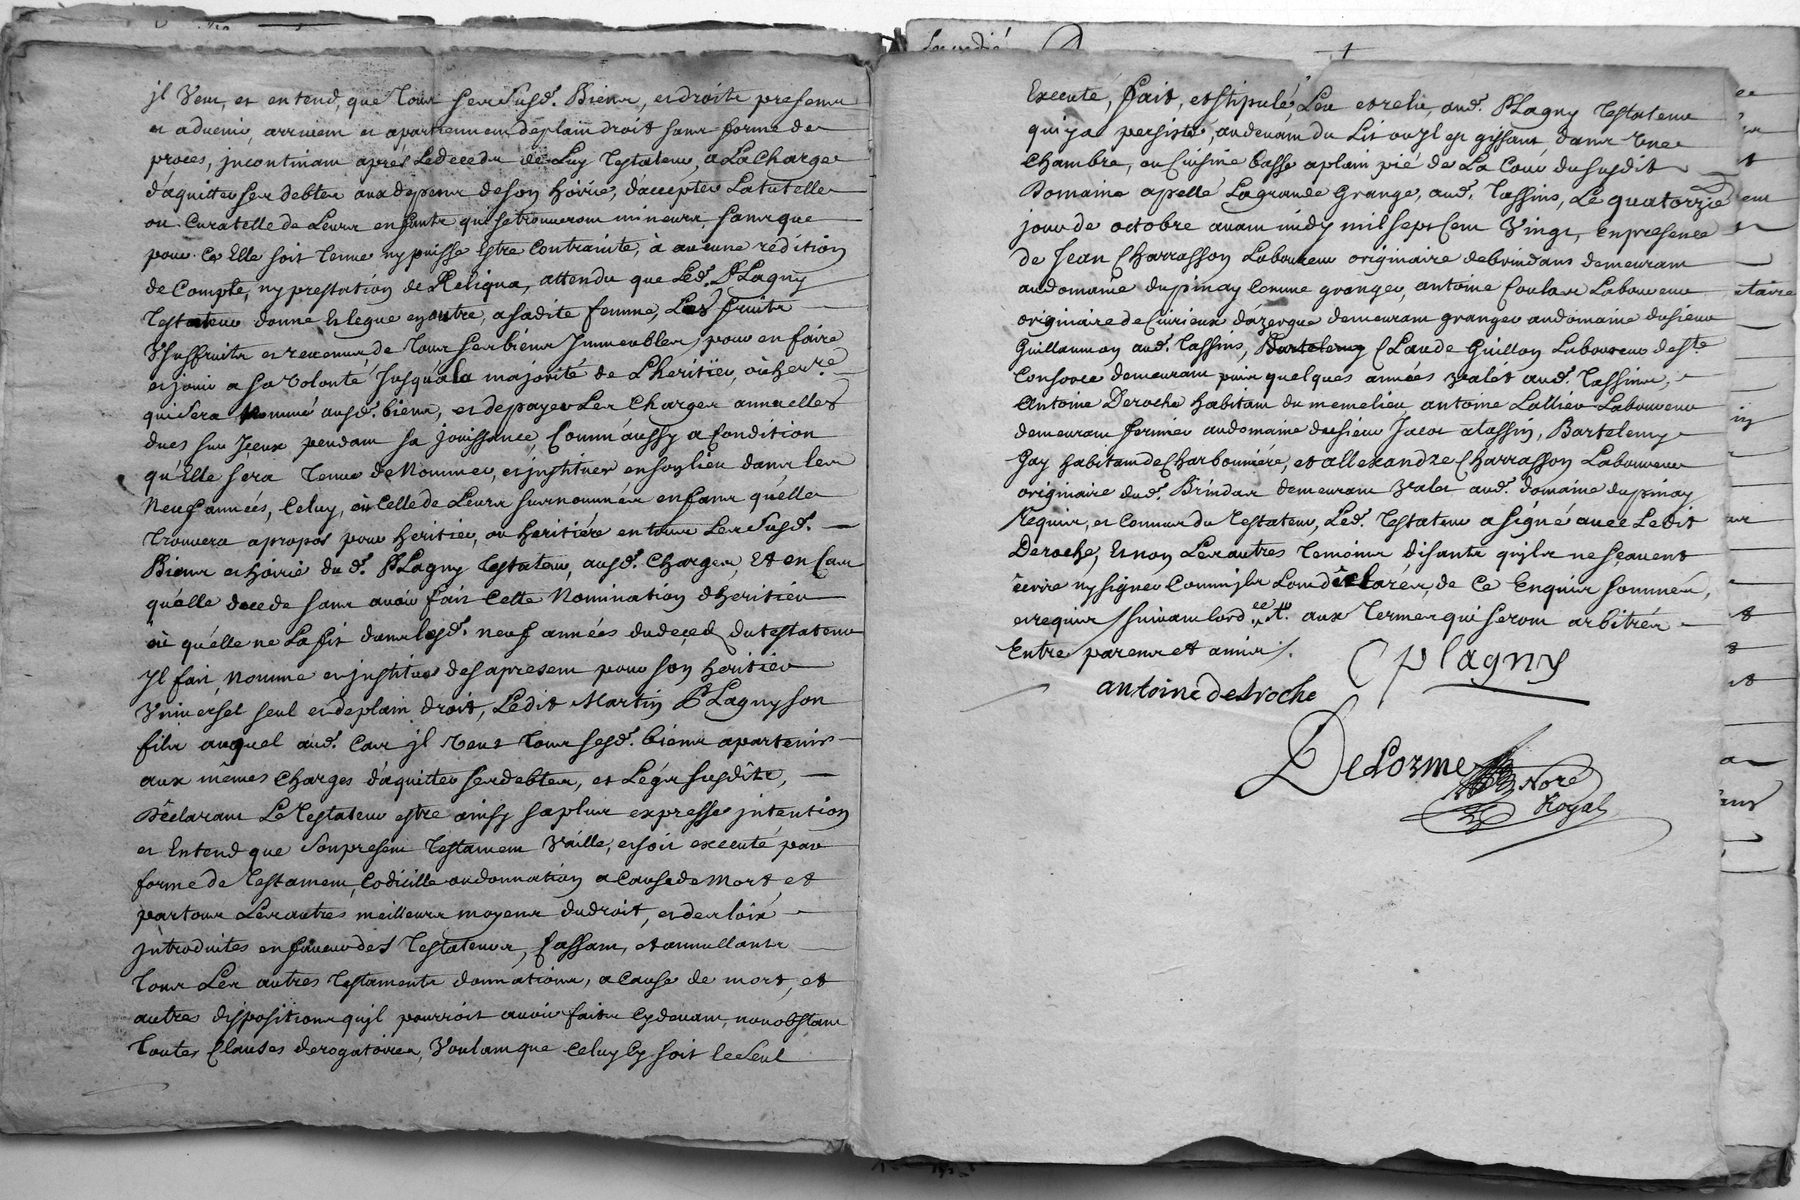 jl Veut, et entend, que tous ses susd.s Biens, et droits presens
et advenir, arrivent et apartiennent de plain droit sans forme de
proces, jncontinant apres Le decedu de Luy Testateur, a La Charge
d'aquitter ses debtes aux depens de son hoirie, d'accepter La tutelle
ou Curatelle de Leurs enfants qui se trouveront mineurs, sans que
pour Ce Elle soit Tenue ny puisse Estre Contrainte, à aucune redition
de Compte, ny prestation de Reliqua, attendu que Led.t PLagny
Testateur donne et legue en outre, a sadite femme, Les fruits
Usuffruits et revenus de Tous ses biens Jmmeubles, pour en faire
et jouir a sa volonté, Jusqu'a la majorité de L'heritier, où her.re
qui sera Nommé ausd.s biens, et de payer Les Charges annuelles
dues sur Jceux pendant sa jouissance, Comm'aussy a Condition
qu'Elle sera Tenue de Nommer, et jnstituer en son lieu dans les
Neuf années, Celuy, où Celle de Leurs surnommés enfans qu'elle
Trouvera apropos pour heritier, ou heritiére en tous Les susd.s
Biens et hoirie du d.t PLagny Testateur, ausd.s Charges, Et en Cas
qu'elle decede sans avoir fait Cette Nomination d'heritier
où qu'elle ne La fit dans lesd.s neuf années du deced du testateur
Jl fait, nomme et jnstitue des apresent pour son heritier
Universel seul et de plain droit, Ledit Martin PLagny son
fils auquel aud.t Cas jl veut Tous sesd.s biens apartenir
aux mêmes Charges d'aquitter ses debtes, et Légs susdits,
Déclarant Le Testateur estre ainsy sa plus expresse jntention
et Entend que son present Testament Vaille, et soit executé par
forme de Testament, Codicille ou donnation a Cause de Mort, et
par tous Les autres meilleurs moyens du droit, et des loix
jntroduites en faveur des Testateurs, Cassant, et annullants
Tous Les autres Testaments donnations, a Cause de mort, et
autres dispositions qu'jl pourroit avoir faites Cy devant, nonobstant
Toutes Clauses derogatoires, Voulant que Celuy Cy soit le seul
Executé, fait, et stipulé, Leu et relu, aud.t PLagny Testateur
qui y a persisté, au devant du Lit ou jl est gissant, dans Une
Chambre, ou Cuisine basse a plain pié de La Cour du susdit
Domaine apellé La grande Grange, aud.t Tassins, Le quatorzie
jour de octobre avant midy mil sept Cent Vingt, En presence
de Jean Charrasson Laboureur originaire de brindans demeurant
au domaine du pinay Comme granger, antoine Coulard Laboureur
originaire de Civrieux dazergue demeurant granger au domaine du sieur
Guillaumon aud.t Tassins, Bartelemy Claude Guillon Laboureur de S.te
Consorce demeurant puis quelques années valet aud.t Tassins,
Antoine Deroche habitant du meme lieu, antoine Lallier Laboureur
demeurant fermier au domaine du sieur Jacob a tassin, Bartelemy
Gay habitant de Charbonniére, et allexandre Charrasson Laboureur
originaire dud.t Brindas demeurant valet aud.t domaine du pinay
Requis, et Connus du Testateur, Led.t Testateur a signé avec Ledit
Deroche, Et non Les autres Temoins disants qu'jls ne sçavent
écrire ny signer Comm'jls L'ont déclarés, de Ce Enquis sommés,
et requis suivant l'ord.ce &.a aux Termes qui seront arbitrés
Entre parens et amis /.
CPlagny
antoine deroche
DeLorme
Nore
Royal